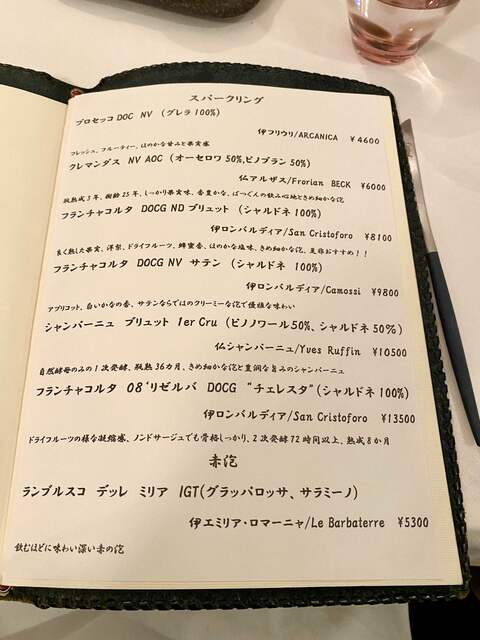 スパークリング
プロセッコ DOC NV （グレラ 100%）
伊フリウリ/ARCANICA ￥4600
フレッシュ、フルーティー、ほのかな甘みと果実感
クレマンダス NV AOC （オーセロワ 50%,ピノブラン 50%）
仏アルザス/Frorian BECK ￥6000
瓶熟成3年、樹齢25年、しっかり果実味、香豊かな、ばつぐんの飲み心地ときめ細かな泡
フランチャコルタ DOCG ND ブリュット （シャルドネ 100%）
伊ロンバルディア/San Cristoforo ￥8100
良く熟した果実、洋梨、ドライフルーツ、蜂蜜香、ほのかな塩味、きめ細かな泡、是非おすすめ！！
フランチャコルタ DOCG NV サテン （シャルドネ 100%）
伊ロンバルディア/Camossi ￥9800
アプリコット、白いかなの香、サテンならではのクリーミーな泡で優雅な味わい
シャンパーニュ ブリュット 1er Cru （ピノノワール50%、シャルドネ 50%）
仏シャンパーニュ/Yves Ruffin ￥10500
自然酵母のみの1次発酵、瓶熟36カ月、きめ細かな泡と豊潤な旨みのシャンパーニュ
フランチャコルタ 08‘リゼルバ DOCG “チェレスタ”（シャルドネ 100%）
伊ロンバルディア/San Cristoforo ￥13500
ドライフルーツの様な凝縮感、ノンドサージュでも骨格しっかり、2次発酵72時間以上、熟成8か月
赤泡
ランブルスコ デッレ ミリア IGT（グラッパロッサ、サラミーノ）
伊エミリア・ロマーニャ/Le Barbaterre ￥5300
飲むほどに味わい深い赤の泡